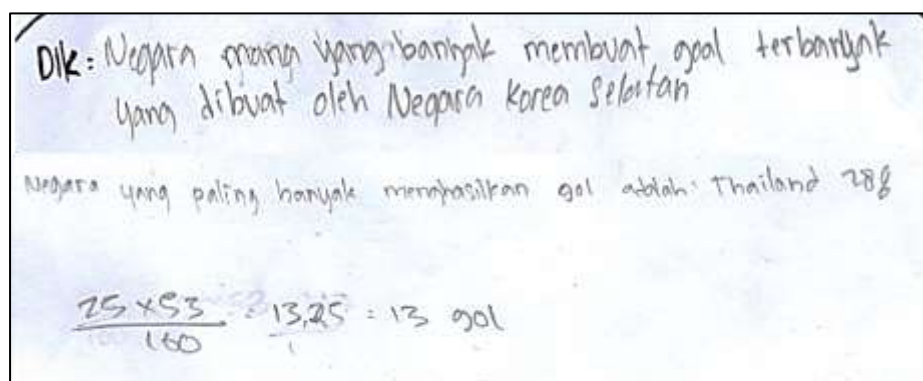 Dlk: Negara mana yang banyak membuat goal terbanyak
yang dibuat oleh Negara Korea Selatan
Negara yang paling banyak menghasilkan gol adalah: Thailand 28%
25 x 53 / 100 = 13,25 = 13 gol